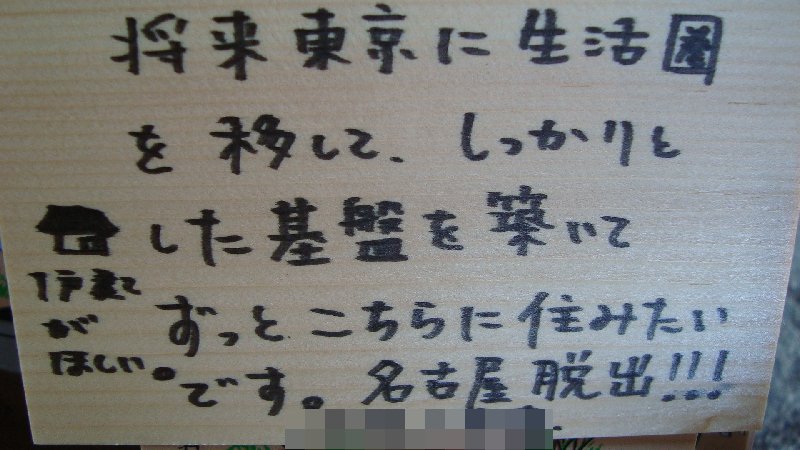 将来東京に生活圏
を移して、しっかりと
した基盤を築いて
ずっとこちらに住みたい
です。名古屋脱出!!!
1戸建て
が
ほしい。